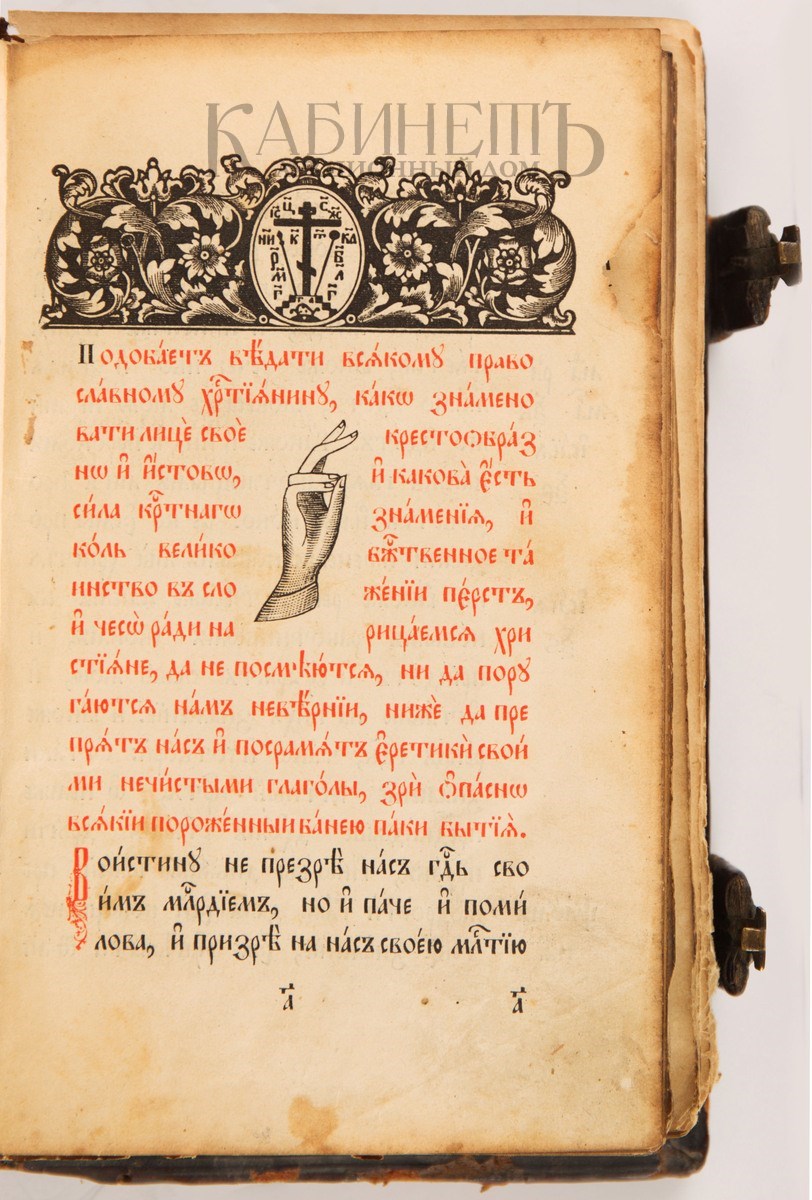 КАБИНЕТЪ
АУКЦИОННЫЙ ДОМ
І҃С Ц С Х҃С
НИ К Т КА
Р҃М В҃Л
Г Г
Подоба́етъ вѣ́дати всѧ́кому право
сла́вному хрⷭ҇тїѧ́нину, ка́кѡ зна́мено
вати лицѐ своѐ крестоѻбра́з
нѡ и҆ и҆́стовѡ, и҆ какова̀ є҆́сть
си́ла крⷭ҇тнагѡ зна́менїѧ, и҆
ко́ль вели́ко бж҃твенное та́
инство въ сло же́нїи пе́рстъ,
и҆ чесѡ̀ ра́ди на рица́емсѧ хри
стїѧ́не, да не посмѣю́тсѧ, ни да пору
га́ютсѧ на́мъ невѣ́рнїи, нижѐ да пре
прѧ́тъ на́съ и҆ посрамѧ́тъ є҆ретикѝ свои́
ми нечи́стыми глаго́лы, зрѝ ѻ҆па́снѡ
всѧ́кїи пороже́нныи ба́нею па́ки бытїѧ̀.
Вои́стину не презрѣ̀ на́съ гдⷭ҇ь сво
и́мъ млⷭ҇рдїемъ, но и҆ па́че и҆ поми́
лова, и҆ призрѣ̀ на на́съ свое́ю млⷭ҇тїю
а҃ а҃